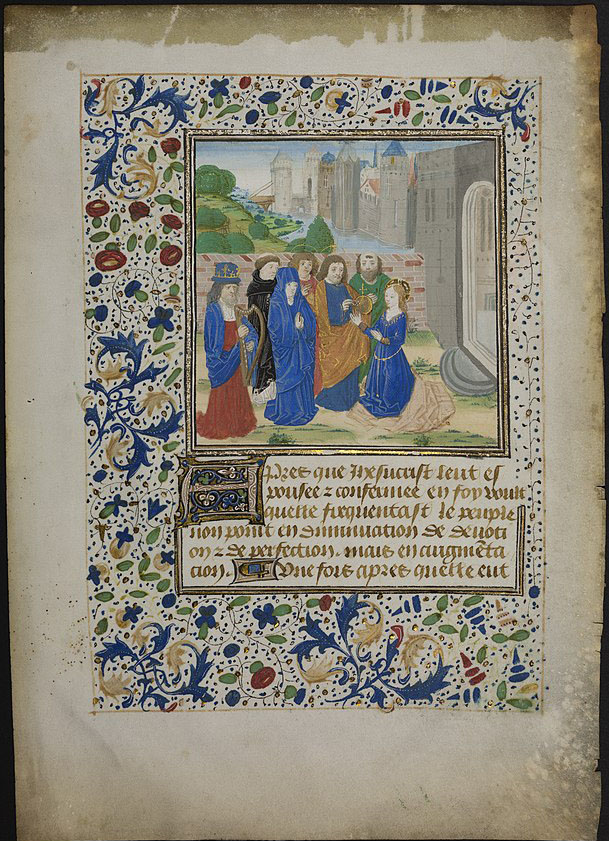 Apres que Ihesucrist leut es
pousee & confermee en foy voult
quelle frequentast le peuple
non point en diminuation de devoti
on & de perfection . mais en augmēta
cion . Une fois apres quelle eut